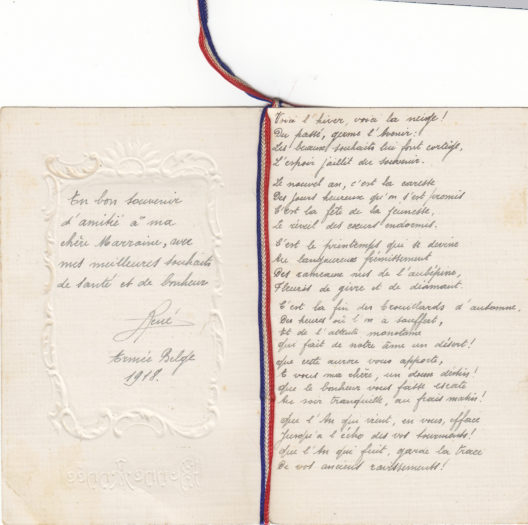 En bon souvenir
d'amitié à ma
chère Marraine, avec
mes meilleures souhaits
de santé et de bonheur
René
Armée Belge
1918.
Voici l'hiver, voici la neige!
Du passé, germe l'avenir:
Les beaux souhaits lui font cortège,
L'espoir jaillit du souvenir.
Le nouvel an, c'est la caresse
Des jours heureux qu'on s'est promis
C'est la fête de la jeunesse,
Le réveil des cœurs endormis.
C'est le printemps qui se devine
Au langoureux frémissement
Des rameaux nus de l'aubépine,
Fleuris de givre et de diamant.
C'est la fin des brouillards d'automne,
Des heures où l'on a souffert,
Et de l'attente monotone
Qui fait de notre âme un désert!
Que cette aurore vous apporte,
À vous ma chère, un doux destin!
Que le bonheur vous fasse escorte
Au soir tranquille, au frais matin!
Que l'An qui vient, en vous, efface
Jusqu'à l'écho des vos tourments!
Que l'An qui fuit, garde la trace
De vos anciens ravissements!